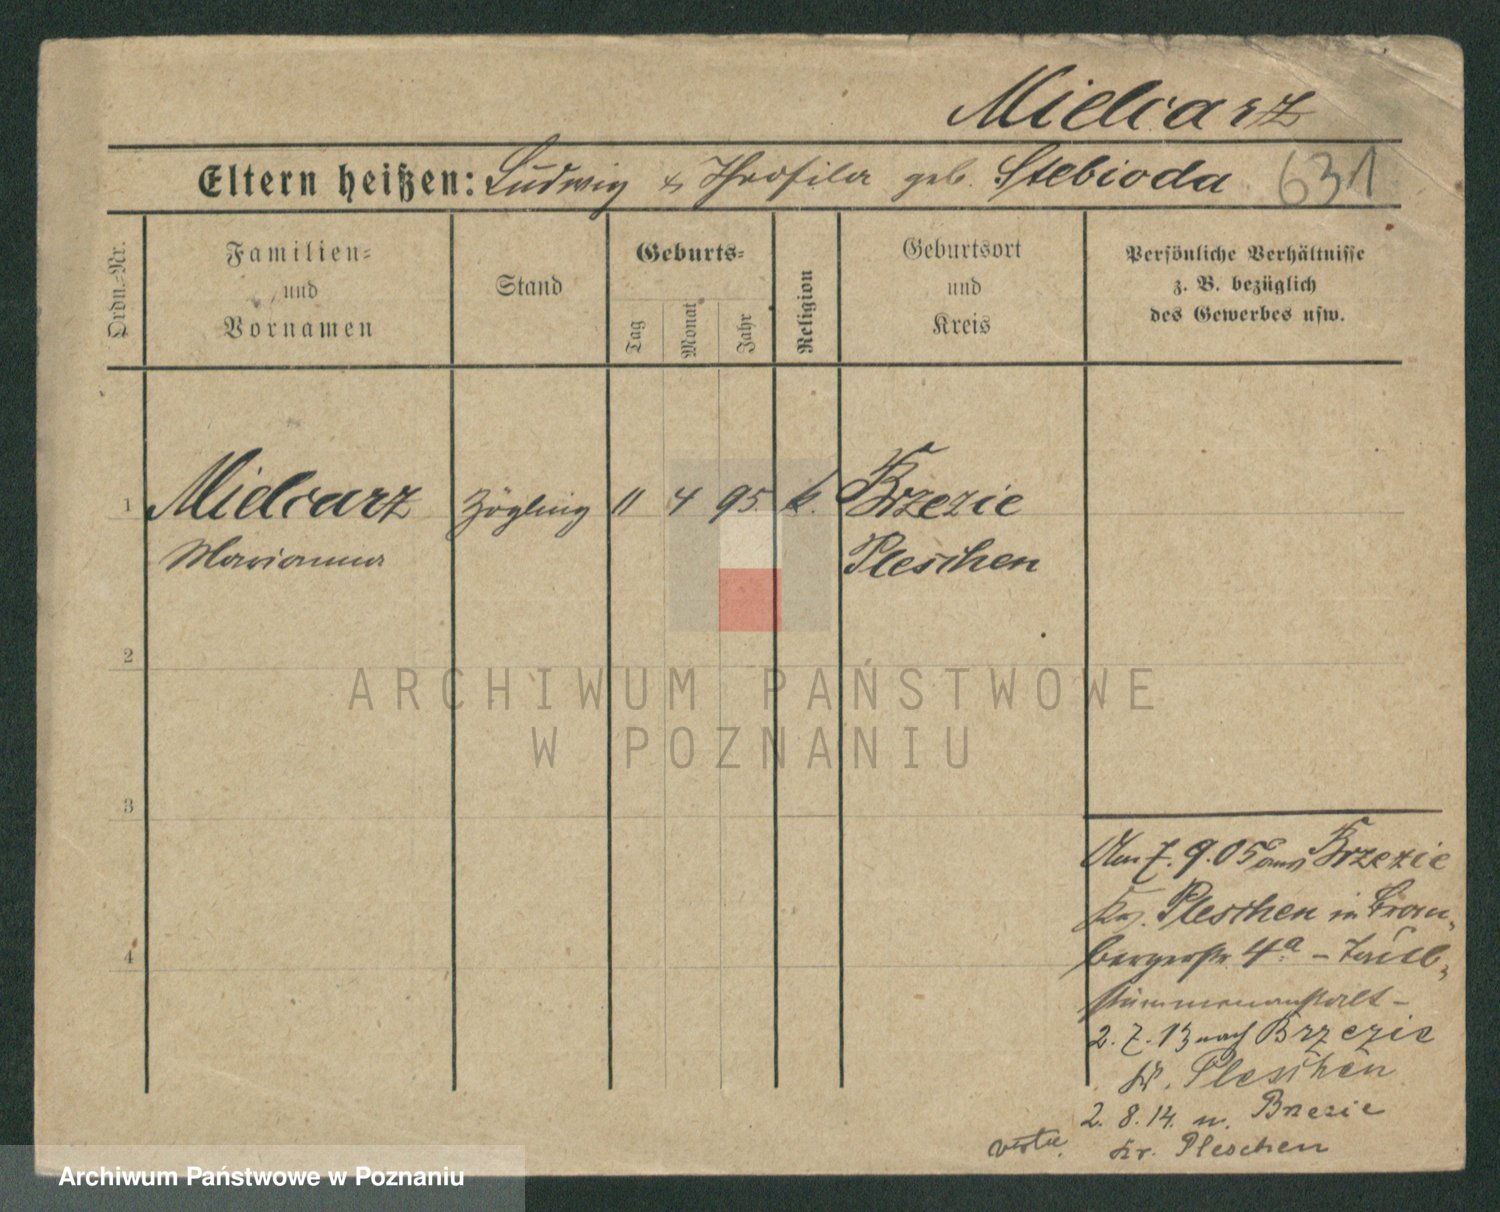 Mielcarz
Eltern heißen: Ludwig & Throfila geb. Stebioda 631
Ordn.-Nr.
Familien=
und
Vornamen
Stand
Geburts=
Tag
Monat
Jahr
Religion
Geburtsort
und
Kreis
Persönliche Verhältnisse
z. B. bezüglich
des Gewerbes usw.
1 Mielcarz Zögling 11 4 95. k. Brzezie
Marianna Pleschen
2
3
4
Am 7. 9. 05 aus Brzezie
Krs. Pleschen in Brom-
bergerstr. 4.a – Taub-
stummenanstalt –
2. 7. 13 nach Brzezie
Kr. Pleschen
2. 8. 14. n. Brzezie
Kr. Pleschen
verte.
ARCHIWUM PAŃSTWOWE
W POZNANIU
Archiwum Państwowe w Poznaniu